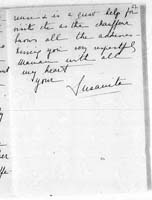 nurse & is a great help for
visit etc as the chauffeur
knows all the address-
kissing you very respectfully
Maman with all
my heart
your
Susanita